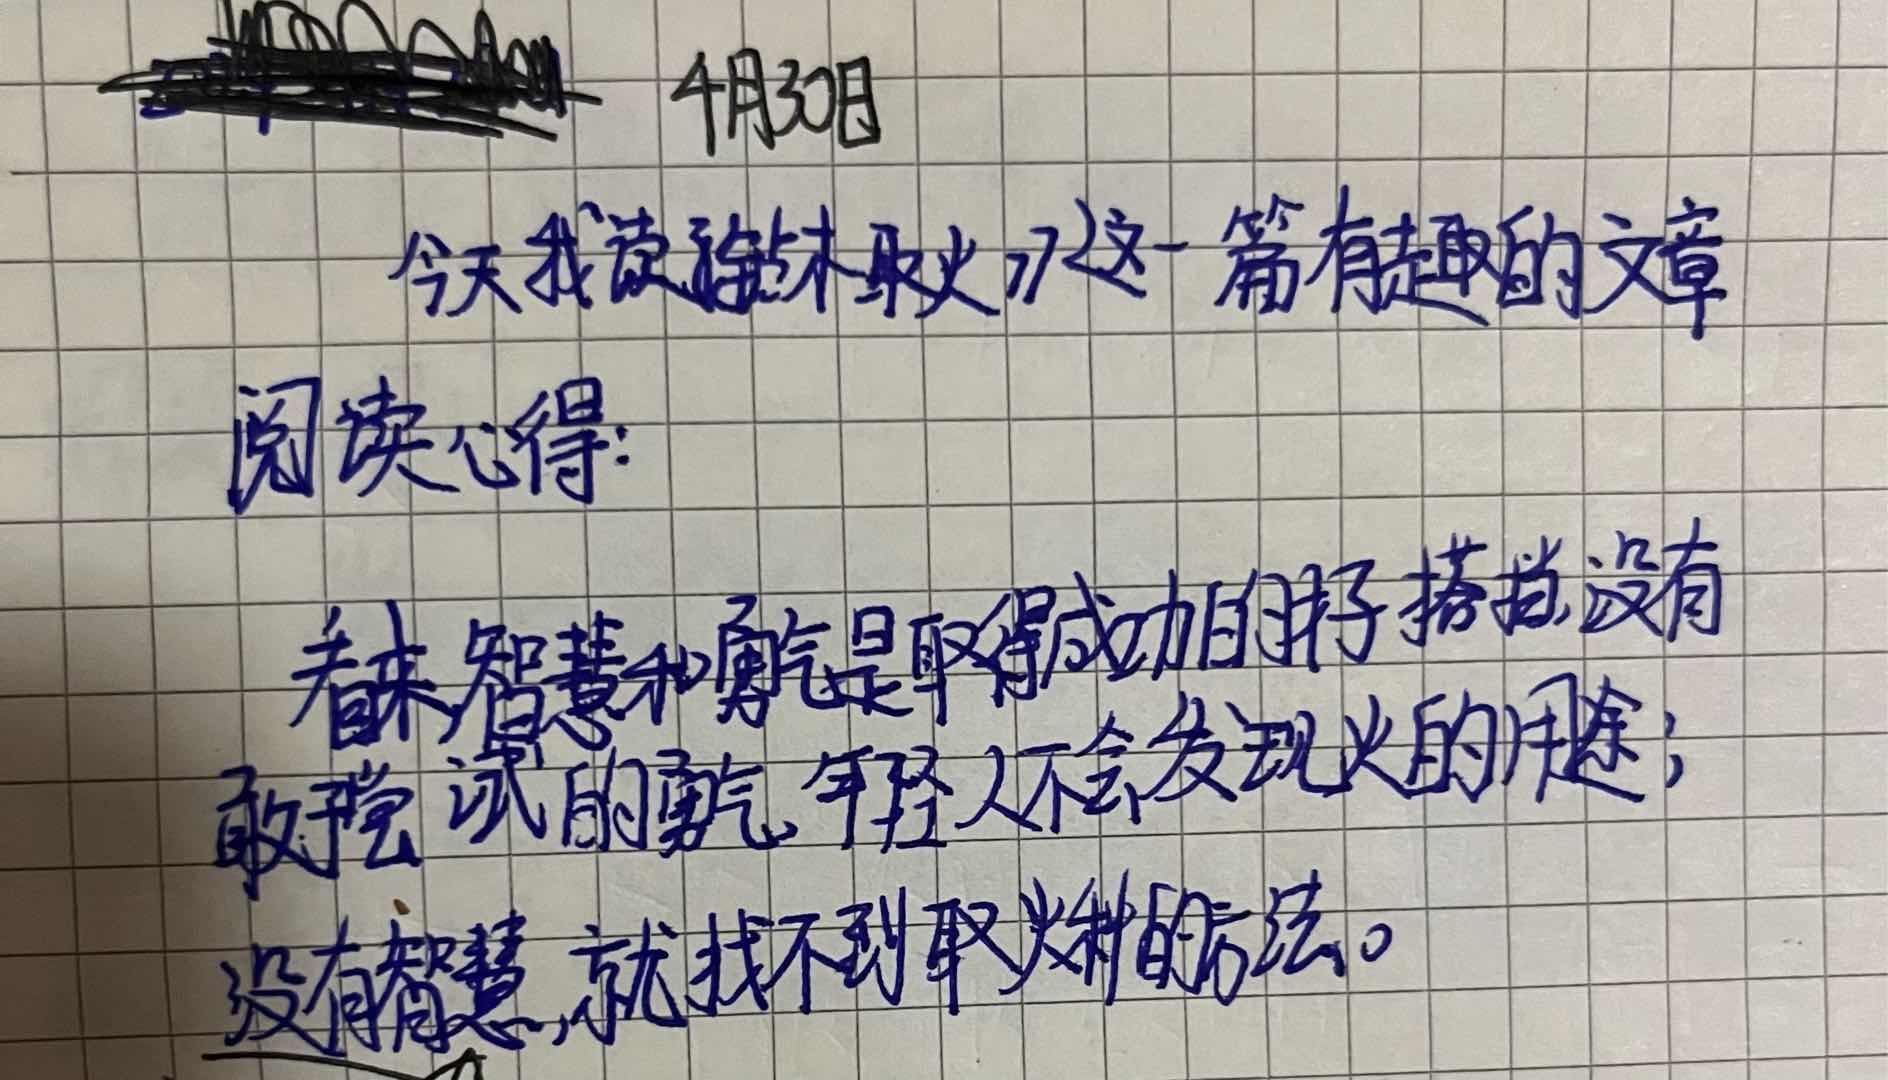 4月30日
今天我读《钻木取火》这一篇有趣的文章
阅读心得:
看来,智慧和勇气是取得成功的好搭档,没有
敢于尝试的勇气,年轻人不会发现火的用途;
没有智慧,就找不到取火种的方法。